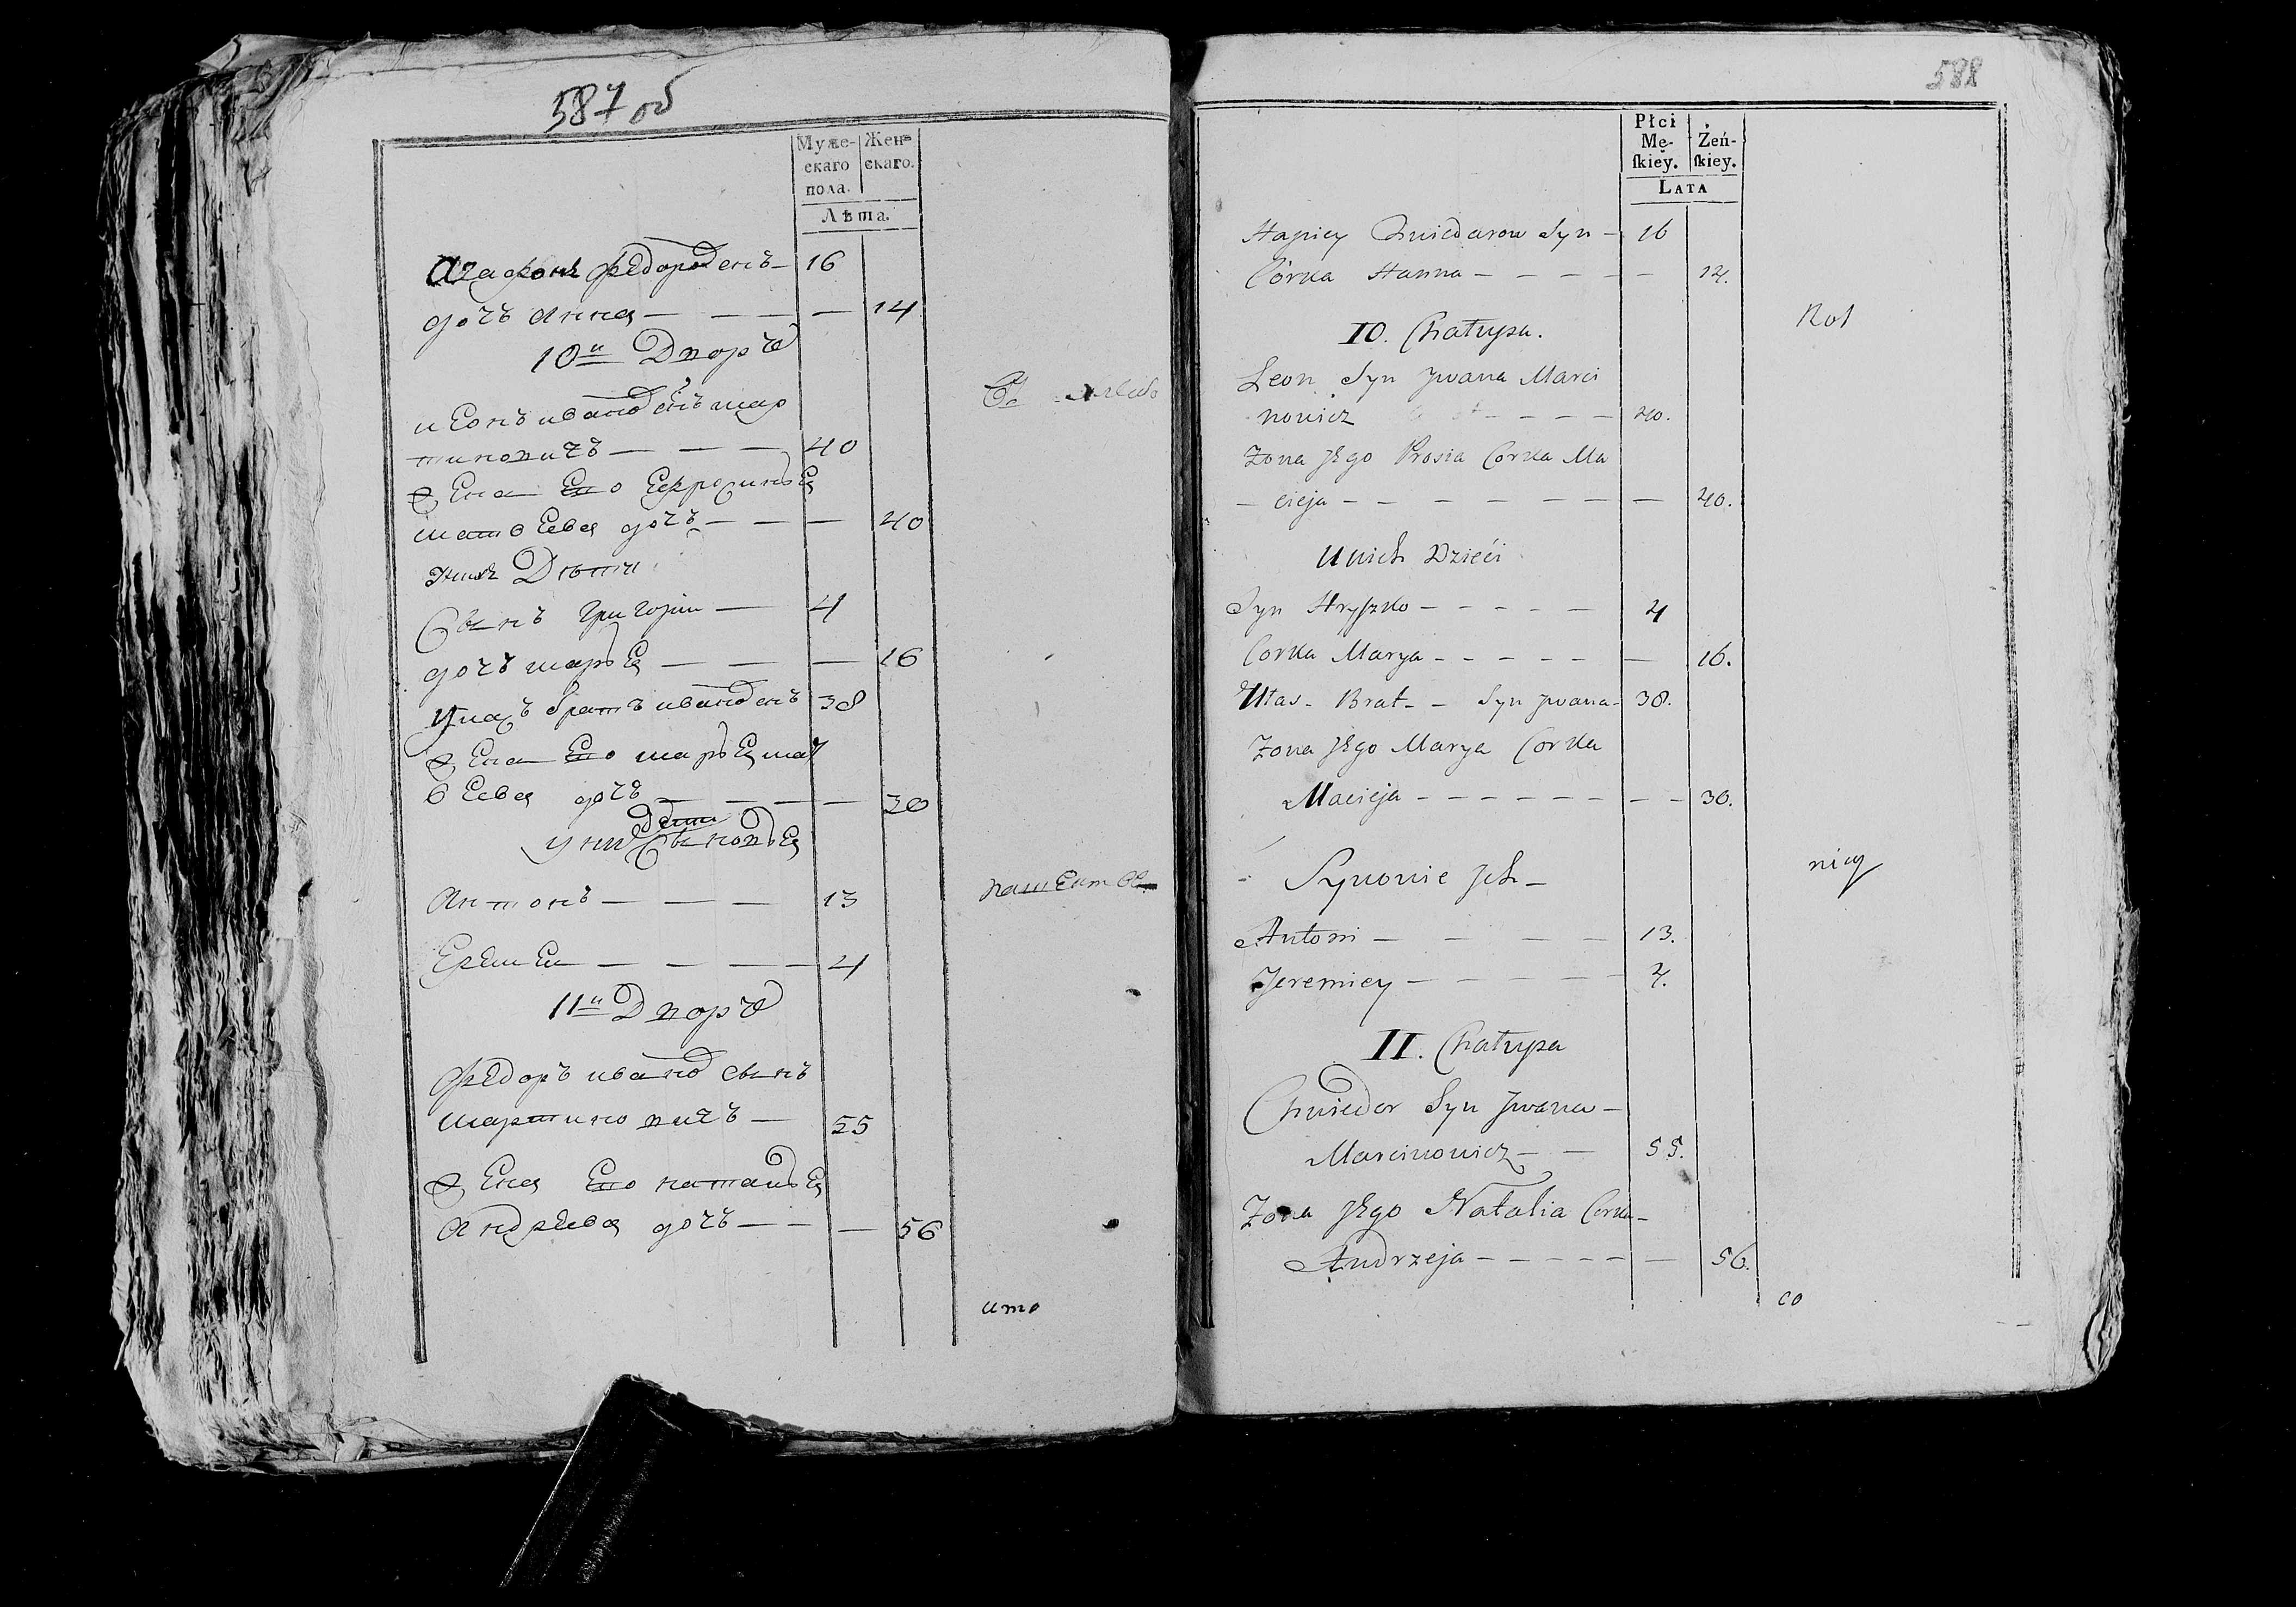 587 об
Муже-
скаго
пола.
Жен-
скаго.
Лѣта.
Агафонъ Федоровъ сынъ — 16
дочь Анна — — — — 14
10й Дворъ
Леонъ Ивановъ сынъ Мар
тиновичъ — — — 40
Жена Его Ефросинья
Матвеева дочь — — — 40
Унихъ Дѣти
Сынъ Григорій — 4
дочь Марья — — — 16
Уласъ братъ Ивановъ сынъ 38
Жена Его Марья Мат
веева дочь — — — — 30
дети
у нихъ Сыновья
Антонъ — — — 13
Еремей — — — — 4
11й Дворъ
Федоръ Ивановъ сынъ
Мартиновичъ — 55
Жена Его Наталья
Андреева дочь — — — 56
што
588
Płci
Mę-
skiey.
Żeń-
skiey.
LATA
Hapiey Chwiedarow Syn — 16
Córka Hanna — — — — — 14.
10. Chałupa.
Rol
Leon Syn Jwana Marci
nowicz — — — — 40.
Zona Jego Prosia Corka Ma
— cieja — — — — — — — — 40.
Unich Dzieći
Syn Hryszko — — — — — 4
Corka Marya — — — — — — 16.
Ułas — Brat — — Syn Jwana — 38.
Zona Jego Marya Corka
Macieja — — — — — — — — 30.
Synowie Jch —
nicy
Antoni — — — — 13.
Jeremiey — — — — — 4.
11. Chałupa
Chwiedor Syn Jwana —
Marcinowicz — — 55.
Zona Jego Natalia Corka —
Andrzeja — — — — — — 56.
co